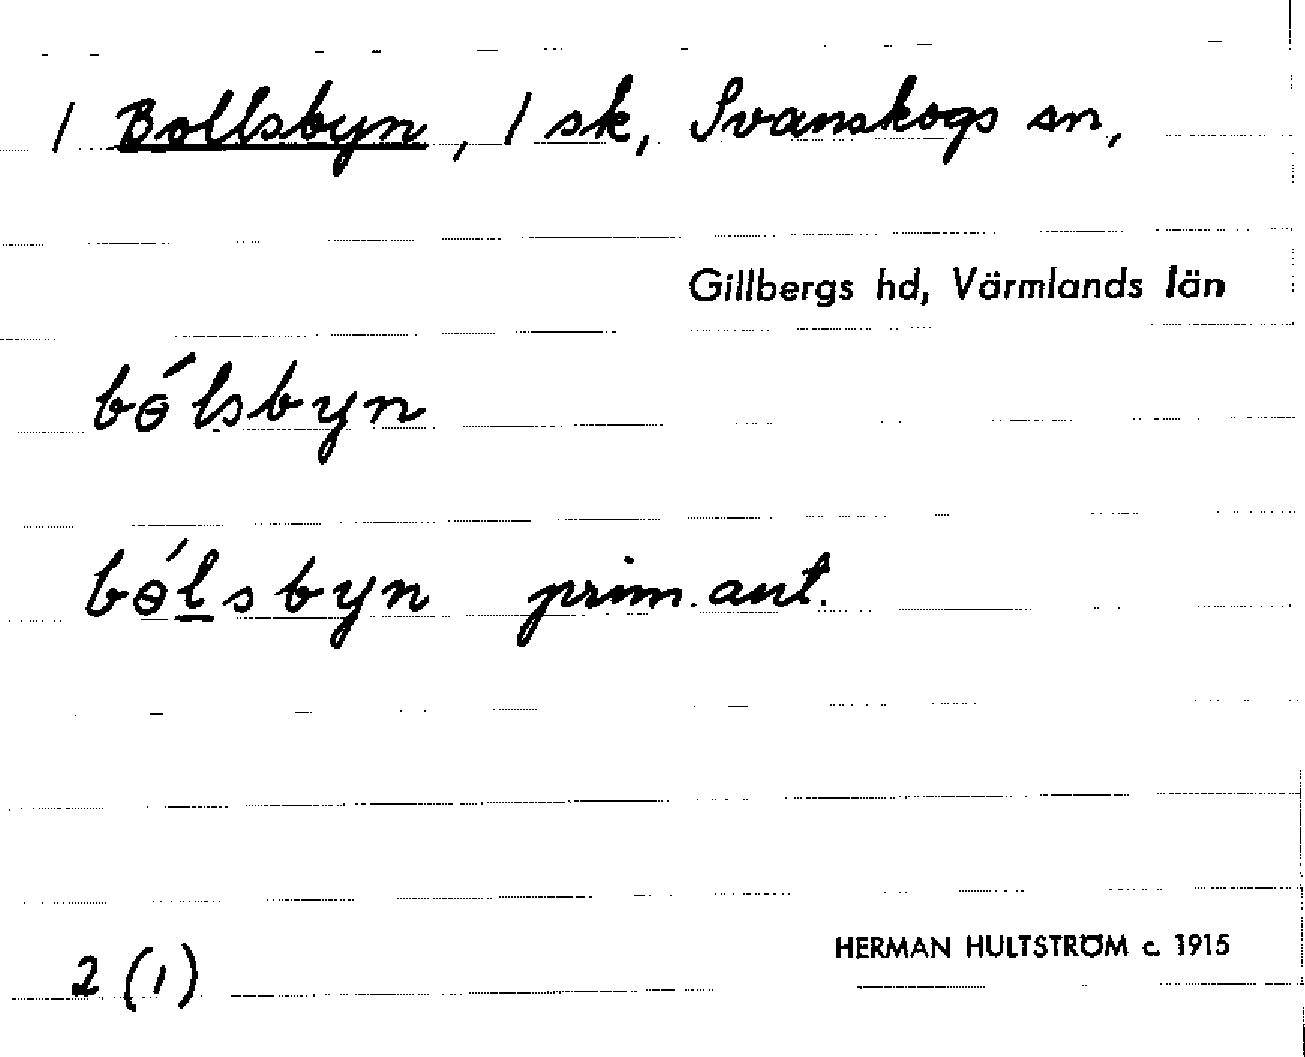 1 Bollsbyn, 1 sk, Svanskogs sn,
Gillbergs hd, Värmlands län
bɵ́lsbyn
bɵ́l̲sbyn prim. ant.
2 (1)
HERMAN HULTSTRÖM c. 1915